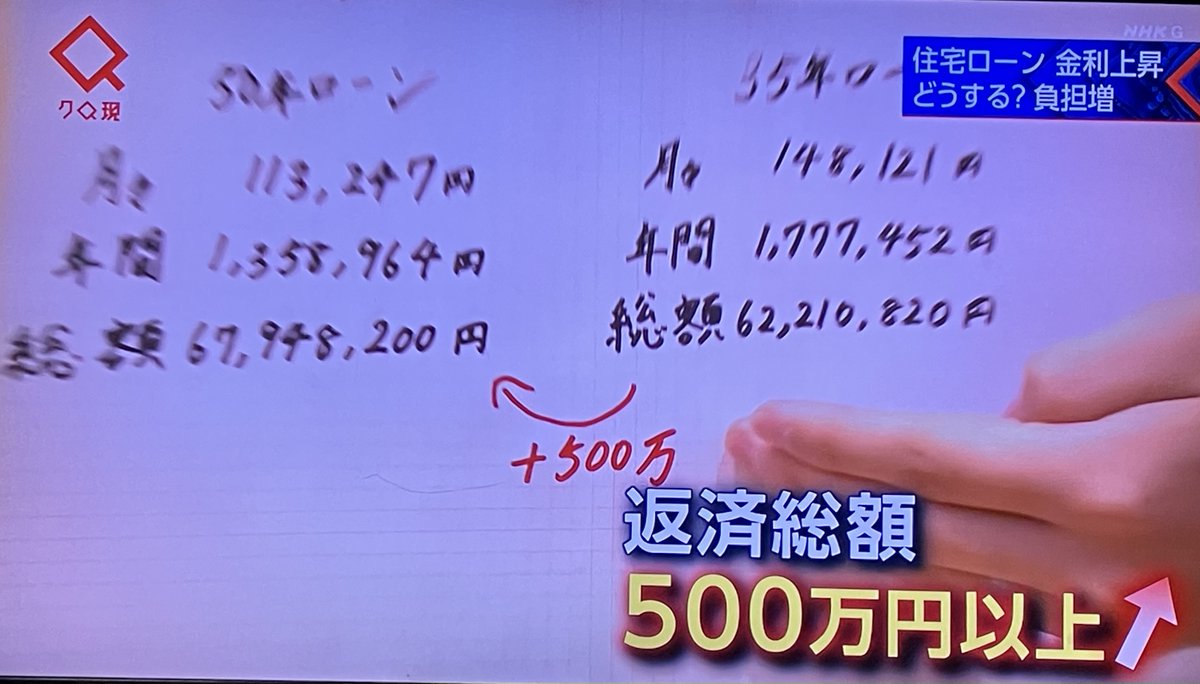 NHK G
クロ現
住宅ローン 金利上昇
どうする?負担増
50年ローン
月々 113,247円
年間 1,358,964円
総額 67,948,200円
35年ロー
月々 148,121円
年間 1,777,452円
総額 62,210,820円
+500万
返済総額
500万円以上